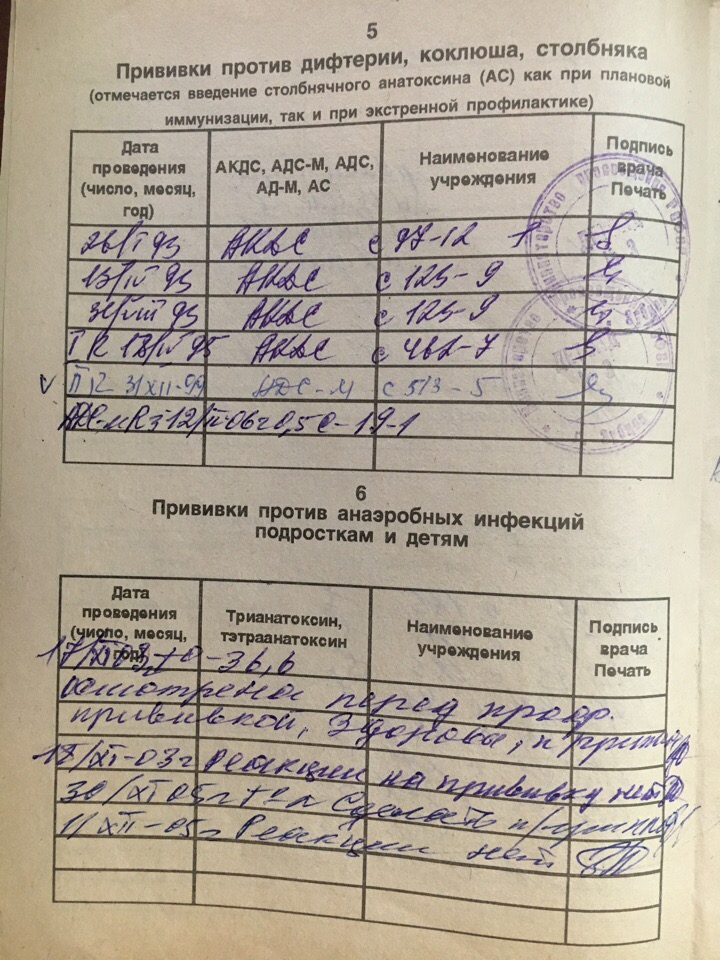 5
Прививки против дифтерии, коклюша, столбняка
(отмечается введение столбнячного анатоксина (АС) как при плановой
иммунизации, так и при экстренной профилактике)
Дата проведения (число, месяц, год) АКДС, АДС-М, АДС, АД-М, АС Наименование учреждения Подпись врача Печать
93 АКДС с 97-12
13/IV 93 АКДС с 125-9
31/VIII 93 АКДС с 125-9
I R 13/IV 95 АКДС с 462-7
V II R 31/XII-99 АДС-М с 513-5
АДС-м R3 12/II-06г 0,5 С-19-1
6
Прививки против анаэробных инфекций
подросткам и детям
Дата проведения (число, месяц, год) Трианатоксин, тэтраанатоксин Наименование учреждения Подпись врача Печать
17/XI 03г t0-36,6
Осмотрена перед проф.
прививкой, Здорова, п/грипп
18/XI-03г Реакции на прививку нет
30/XI 05г Сделать п/грипп
1/XII-05г Реакции нет